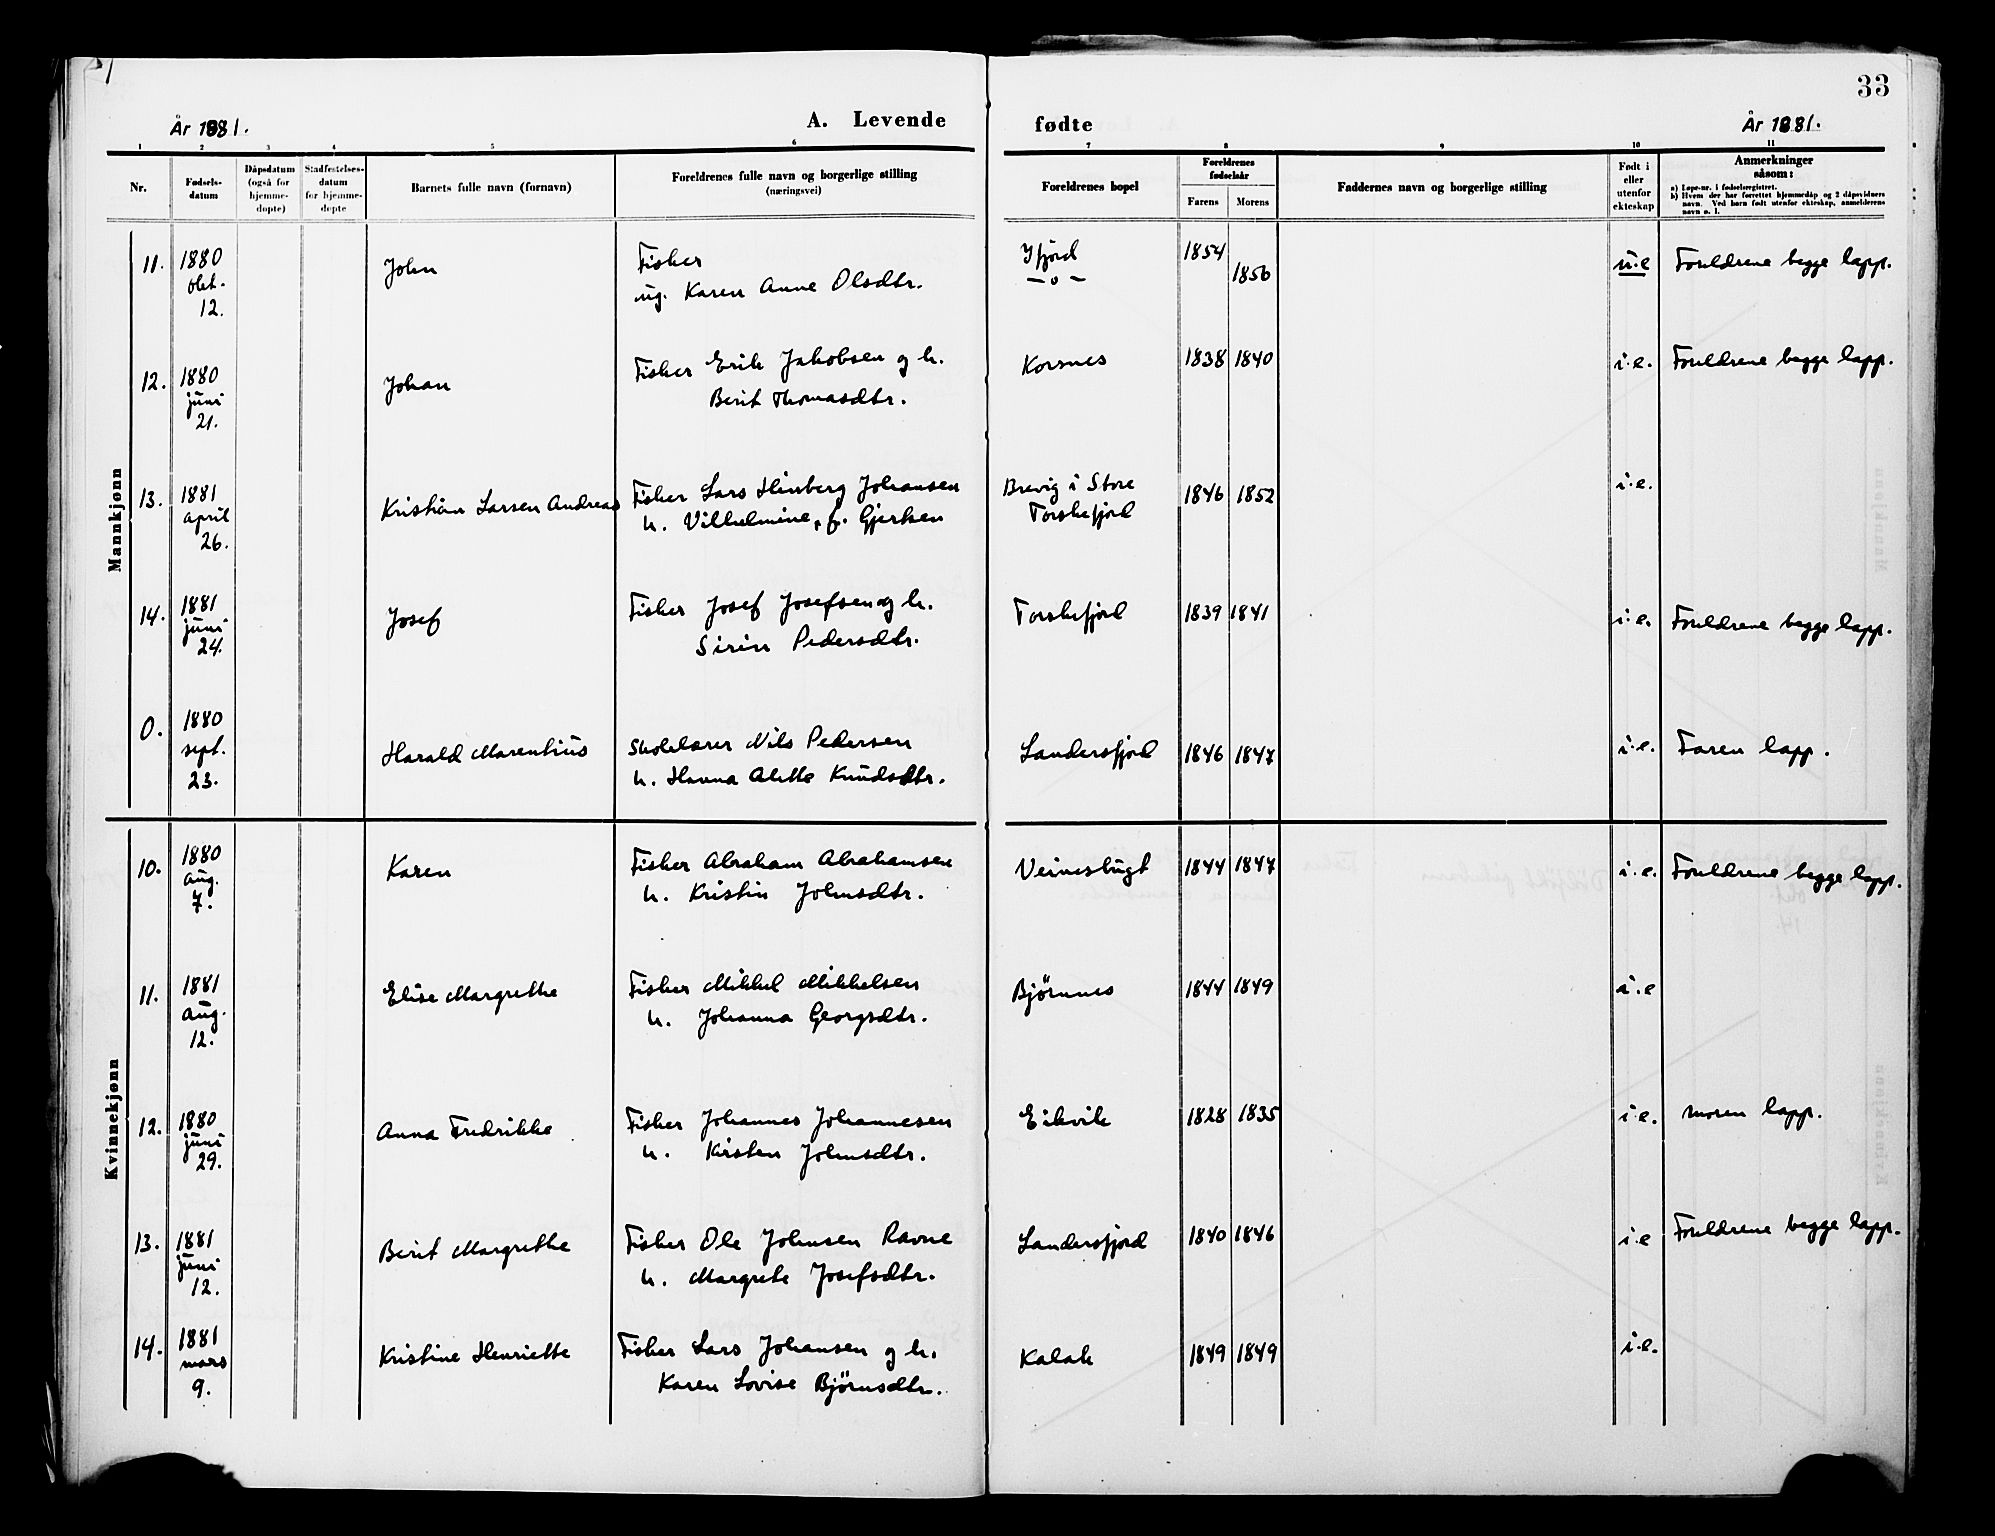 33
År 1881.
A. Levende
fødte
År 1881.
1 2 3 4 5 6 7 8 9 10 11
Nr.
Fødsels-
datum
Dåpsdatum
(også for
hjemme-
døpte)
Stadfestelses-
datum
for hjemme-
døpte
Barnets fulle navn (fornavn)
Foreldrenes fulle navn og borgerlige stilling
(næringsvei)
Foreldrenes bopel
Foreldrenes
fødselsår
Farens Morens
Faddernes navn og borgerlige stilling
Født i
eller
utenfor
ekteskap
Anmerkninger
såsom:
a) Løpe-nr. i fødselsregistret.
b) Hvem der har forrettet hjemmedåp og 2 dåpsvidners
navn. Ved barn født utenfor ekteskap, anmelderens
navn o. l.
Mannkjønn
11. 1880 John Fisker Ifjord 1854 u.e Foreldrene begge lapp.
okt. ug. Karen Anne Olsdtr. —o— 1856
12.
12. 1880 Johan Fisker Erik Jakobsen og h. Korsnes 1838 1840 i.e. Foreldrene begge lapp.
juni Berit Thomasdtr.
21.
13. 1881 Kristian Larsen Andreas Fisker Lars Hinberg Johansen Brevig i Store 1846 1852 i.e.
april h. Vilhelmine, f. Gjertsen Torskefjord
26.
14. 1881 Josef Fisker Josef Josefsen og h. Torskefjord 1839 1841 i.e. Foreldrene begge lapp.
juni Sirin Pedersdtr.
24.
0. 1880 Harald Marentius Skolelærer Nils Pedersen Landersfjord 1846 1847 i.e. Faren lapp.
sept. h. Hanna Alette Knudsdtr.
23.
Kvinnekjønn
10. 1880 Karen Fisker Abraham Abrahamsen Veinesbugt 1844 1847 i.e. Foreldrene begge lapp.
aug. h. Kristin Johnsdtr.
7.
11. 1881 Elise Margrethe Fisker Mikkel Mikkelsen Bjørnnes 1844 1849 i.e
aug. h. Johanna Georgsdtr.
12.
12. 1880 Anna Fredrikke Fisker Johannes Johannesen Eikvik 1828 1835 i.e. Moren lapp.
juni h. Kirsten Johnsdtr.
29.
13. 1881 Berit Margrethe Fisker Ole Johnsen Ravne Landersfjord 1840 1846 i.e Foreldrene begge lapp.
juni h. Margrete Josefsdtr.
12.
14. 1881 Kristine Henriette Fisker Lars Johansen og h. Kalak 1849 1849 i.e.
mars Karen Lovise Bjørnsdtr.
9.